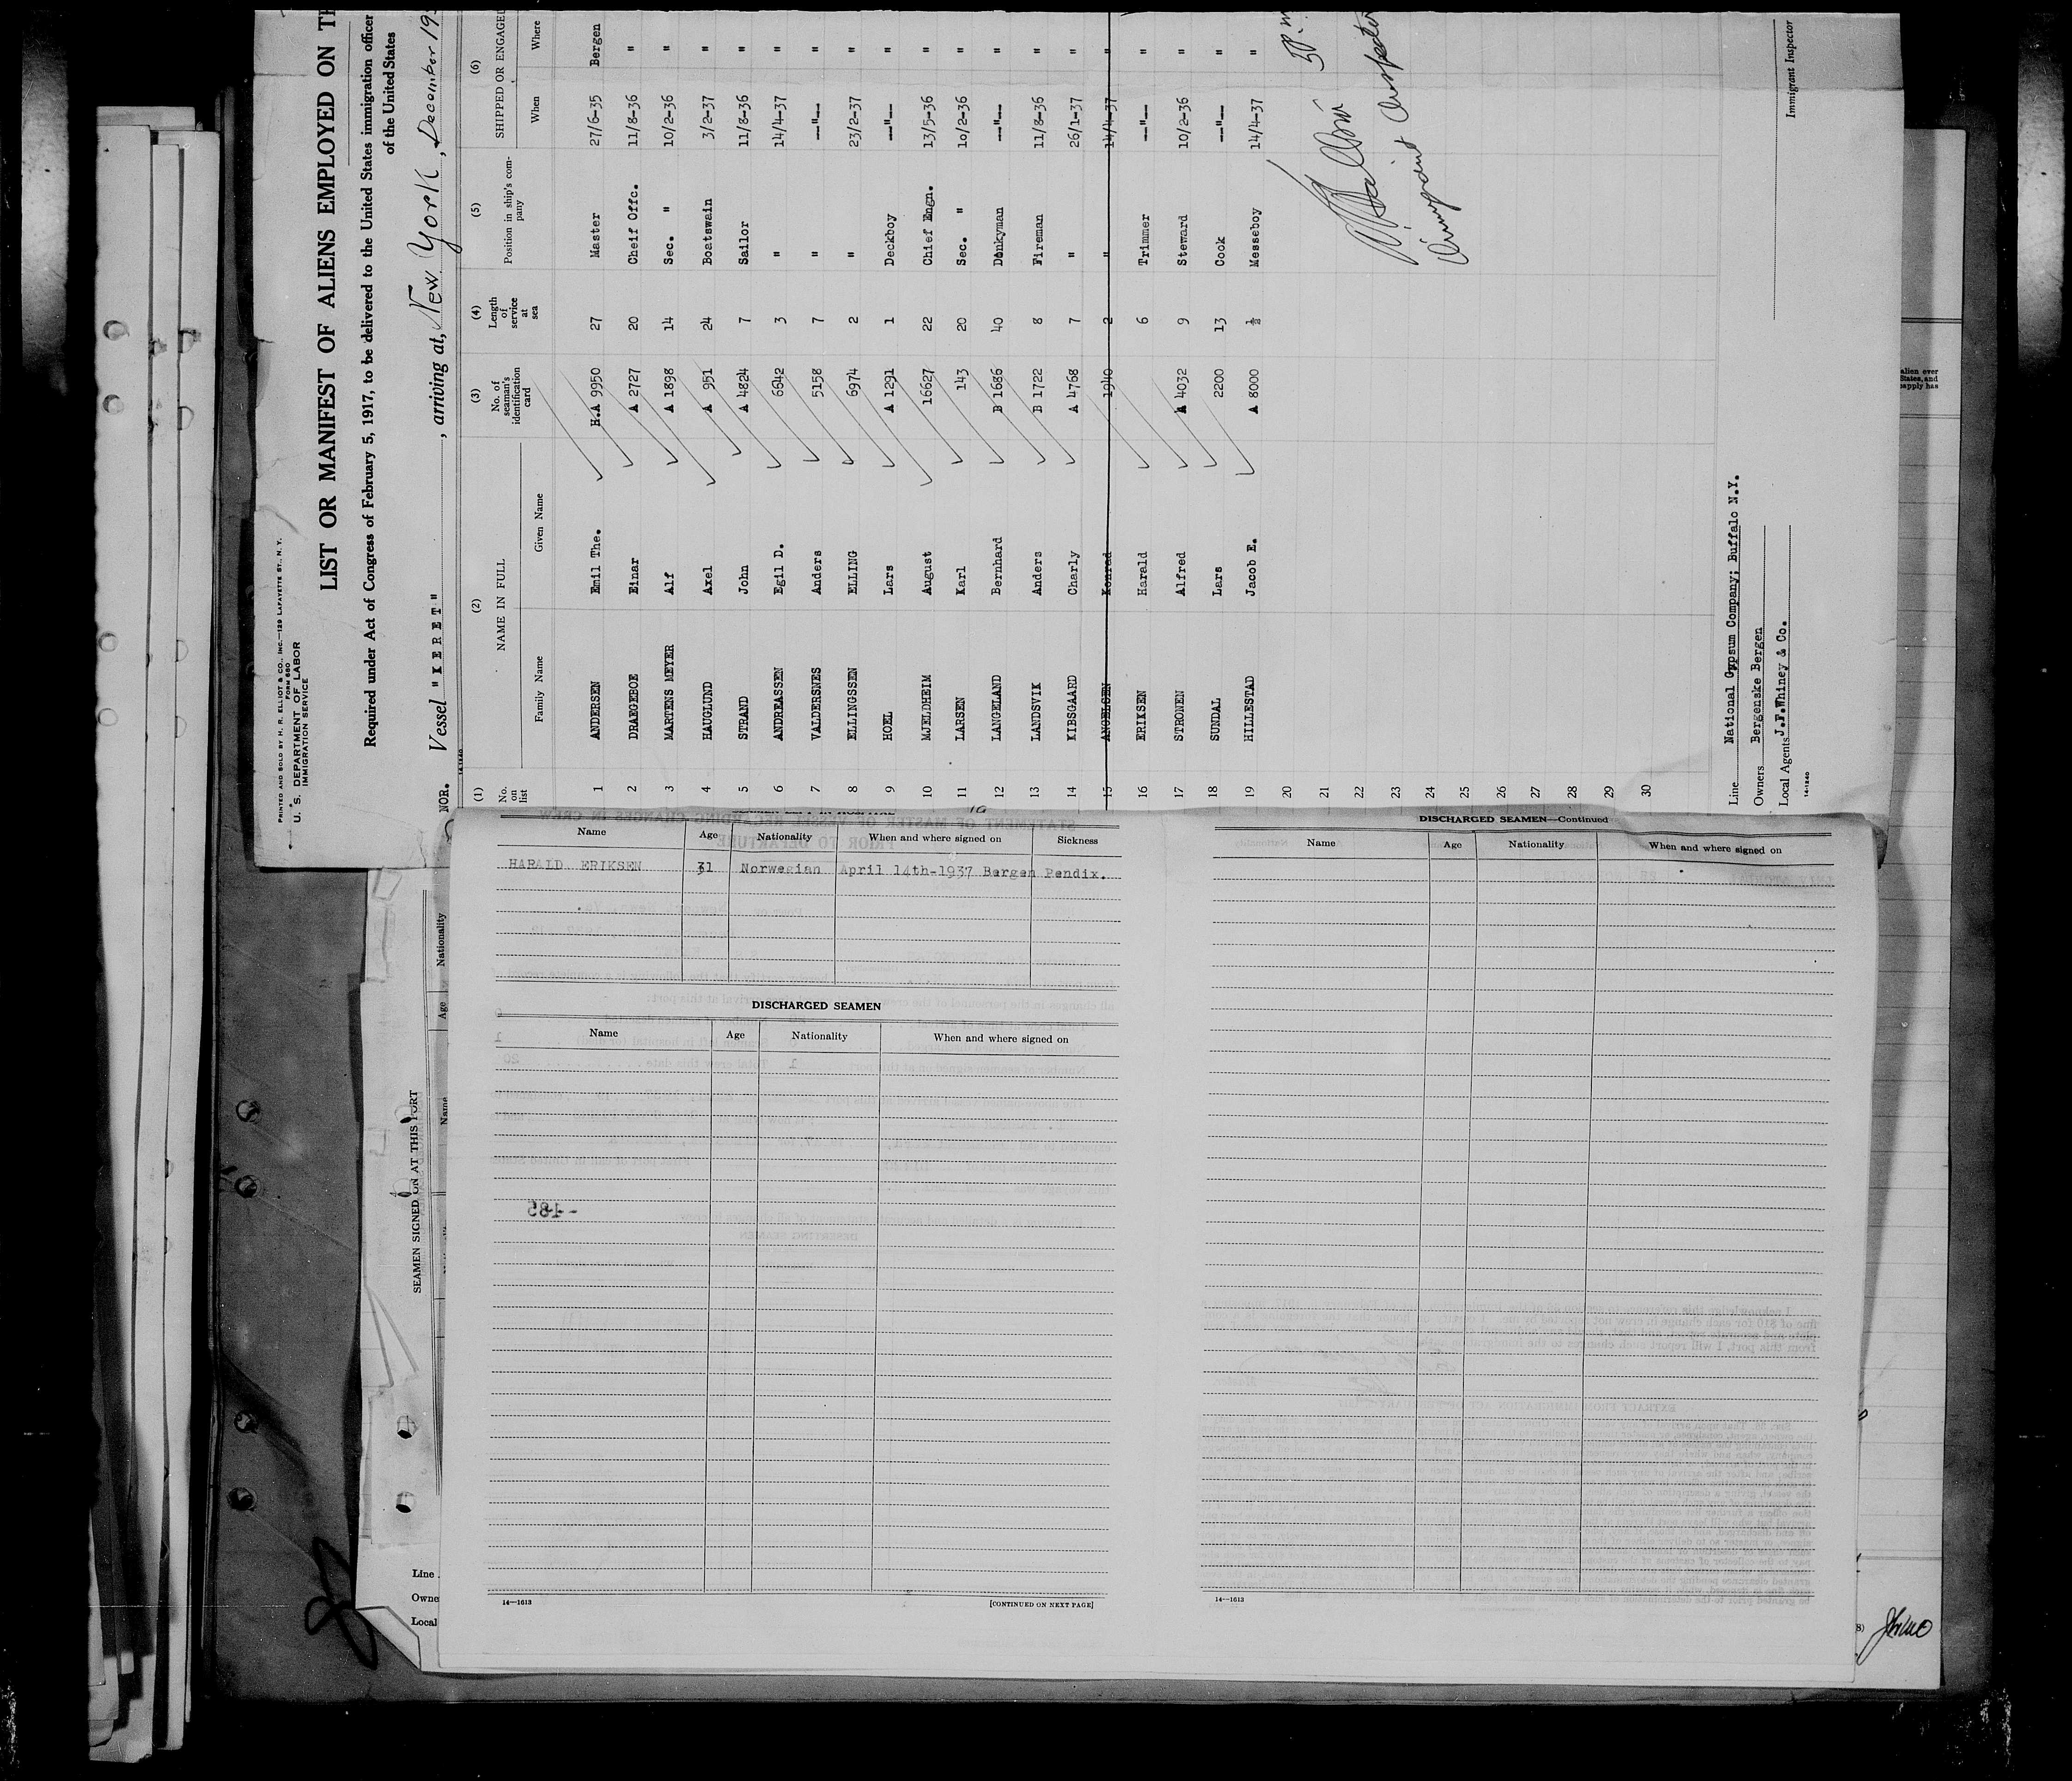 PRINTED AND SOLD BY H. R. ELLIOT & CO., INC.—129 LAFAYETTE ST., N.Y.
FORM 680
U. S. DEPARTMENT OF LABOR
IMMIGRATION SERVICE
LIST OR MANIFEST OF ALIENS EMPLOYED ON TH
Required under Act of Congress of February 5, 1917, to be delivered to the United States immigration officer
of the United States
NOR. Vessel , arriving at, New York, December 193
14-1240
(1) (2) (3) (4) (5) (6)
No. on list NAME IN FULL No. of seaman's identification card Length of service at sea Position in ship's company SHIPPED OR ENGAGED
Family Name Given Name When Where
1 ANDERSEN Emil The. H.A 9950 27 Master 27/6-35 Bergen
2 DRAEGEBOE Einar A 2727 20 Cheif Offc. 11/8-36 "
3 MARTENS MEYER Alf A 1898 14 Sec. " 10/2-36 "
4 HAUGLUND Axel A 951 24 Boatswain 3/2-37 "
5 STRAND John A 4824 7 Sailor 11/8-36 "
6 ANDREASSEN Egil D. 6942 3 " 14/4-37 "
7 VALDERSNES Anders 5158 7 " —"— "
8 ELLINGSSEN ELLING 6974 2 " 23/2-37 "
9 HOEL Lars A 1291 1 Deckboy —"— "
10 MJELDHEIM August 16627 22 Chief Engn. 13/5-36 "
11 LARSEN Karl 143 20 Sec. " 10/2-36 "
12 LANGELAND Bernhard B 1686 40 Donkyman —"— "
13 LANDSVIK Anders B 1722 8 Fireman 11/8-36 "
14 KIBSGAARD Charly A 4768 7 " 26/1-37 "
15 ANGELSEN Konrad 1940 2 " 14/4-37 "
16 ERIKSEN Harald 6 Trimmer —"— "
17 STRONEN Alfred A 4032 9 Steward 10/2-36 "
18 SUNDAL Lars 2200 13 Cook —"— "
19 HILLESTAD Jacob E. A 8000 ½ Messeboy 14/4-37 "
20
21
22
23
24
25
26
27
28
29
30
Immigrant Inspector
Line National Gypsum Company; Buffalo N.Y.
Owners Bergenske Bergen
Local Agents J.F.Whiney & Co.
14-1240
Immigrant Inspector
alien over
States, and
apply has
Name Age Nationality When and where signed on Sickness
HARALD ERIKSEN 31 Norwegian April 14th-1937 Bergen Pendix.
DISCHARGED SEAMEN
Name Age Nationality When and where signed on
14—1613 [CONTINUED ON NEXT PAGE]
DISCHARGED SEAMEN—Continued
Name Age Nationality When and where signed on
14—1613
SEAMEN SIGNED ON AT THIS PORT
Name Age Nationality
Line
Owne
Local